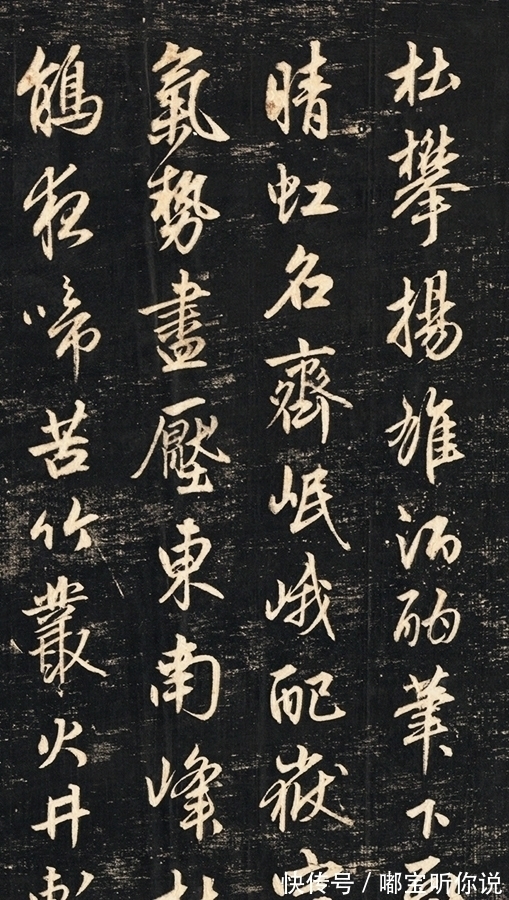 杜攀揚雄洒酌筆下
晴虹名齊岷峨配嶽
氣勢盡壓東南峰
鵑夜啼苦竹叢火井
快传号/嘟宝听你说